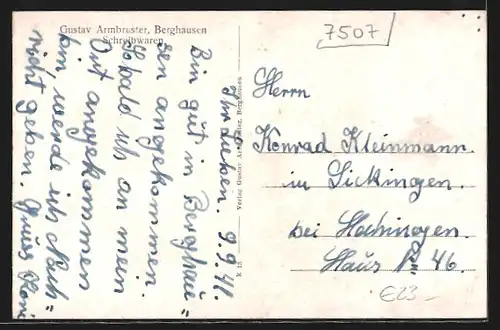 Gustav Armbruster, Berghausen
Schreibwaren
7507
Ihr Lieben. 9.9.41.
Bin gut in Berghau=
sen angekommen
Sobald ich an mein
Ort angekommen
bin werde ich Nach=
richt geben. Gruss
Verlag Gustav Armbruster, Berghausen
K 18
Herrn
Konrad Kleinmann
in Sickingen.
bei Hechingen.
Haus 46.
€23-